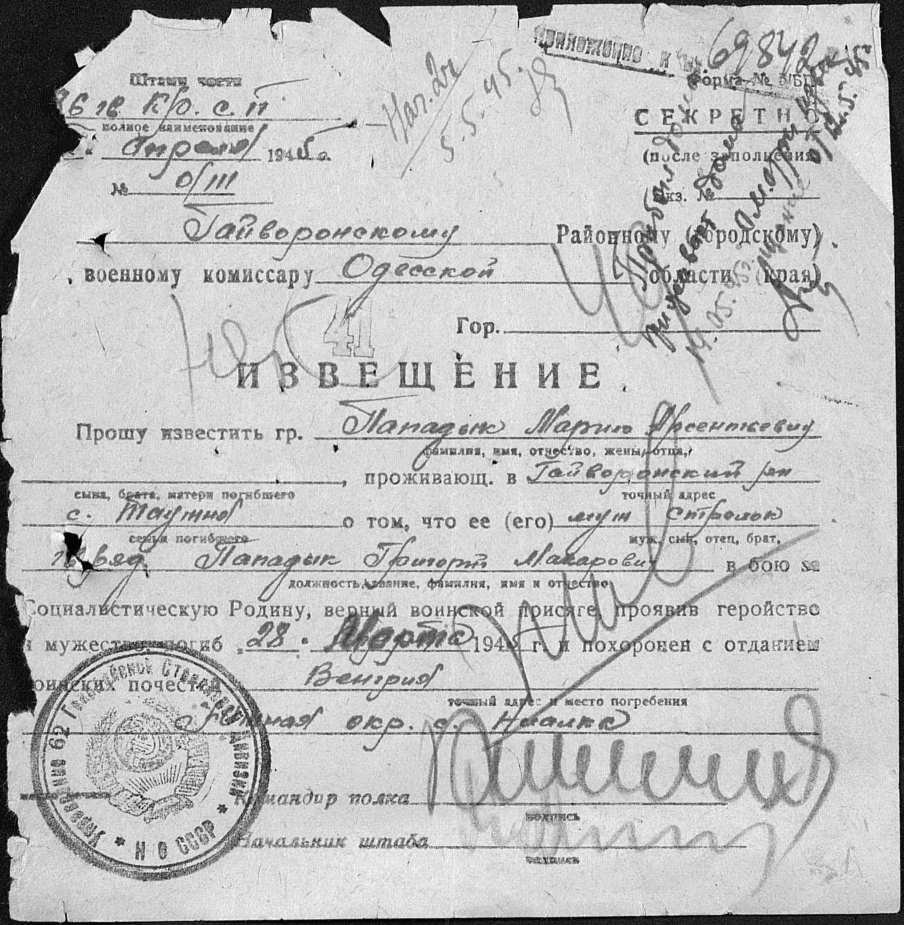 69842
Форма № 6/БП
Штамп части
Кр. с. п
полное наименование
СЕКРЕТНО
апреля 1945 г.
(после заполнения)
5.5.45.
№ 0/III
Экз. №
Гайворонскому Районному (городскому)
военному комиссару Одесской области (края)
41
Гор.
ИЗВЕЩЕНИЕ
Прошу известить гр. Пападык Марию Арсентьевну
фамилия, имя, отчество, жены, отца,
, проживающ. в Гайворонский рн
сына, брата, матери погибшего точный адрес
с. Таужна о том, что ее (его) муж стрелок
семьи погибшего муж, сын, отец, брат,
ряд. Пападык Григорий Макарович в бою за
должность, звание, фамилия, имя и отчество
Социалистическую Родину, верный воинской присяге, проявив геройство
и мужество, погиб 28. Марта 1945 г. и похоронен с отданием
воинских почестей Венгрия
точный адрес и место погребения
окр. с.
Командир полка
подпись
Начальник штаба
подпись
Управление 62 Гвардейской Стрелковой Дивизии * НО СССР *